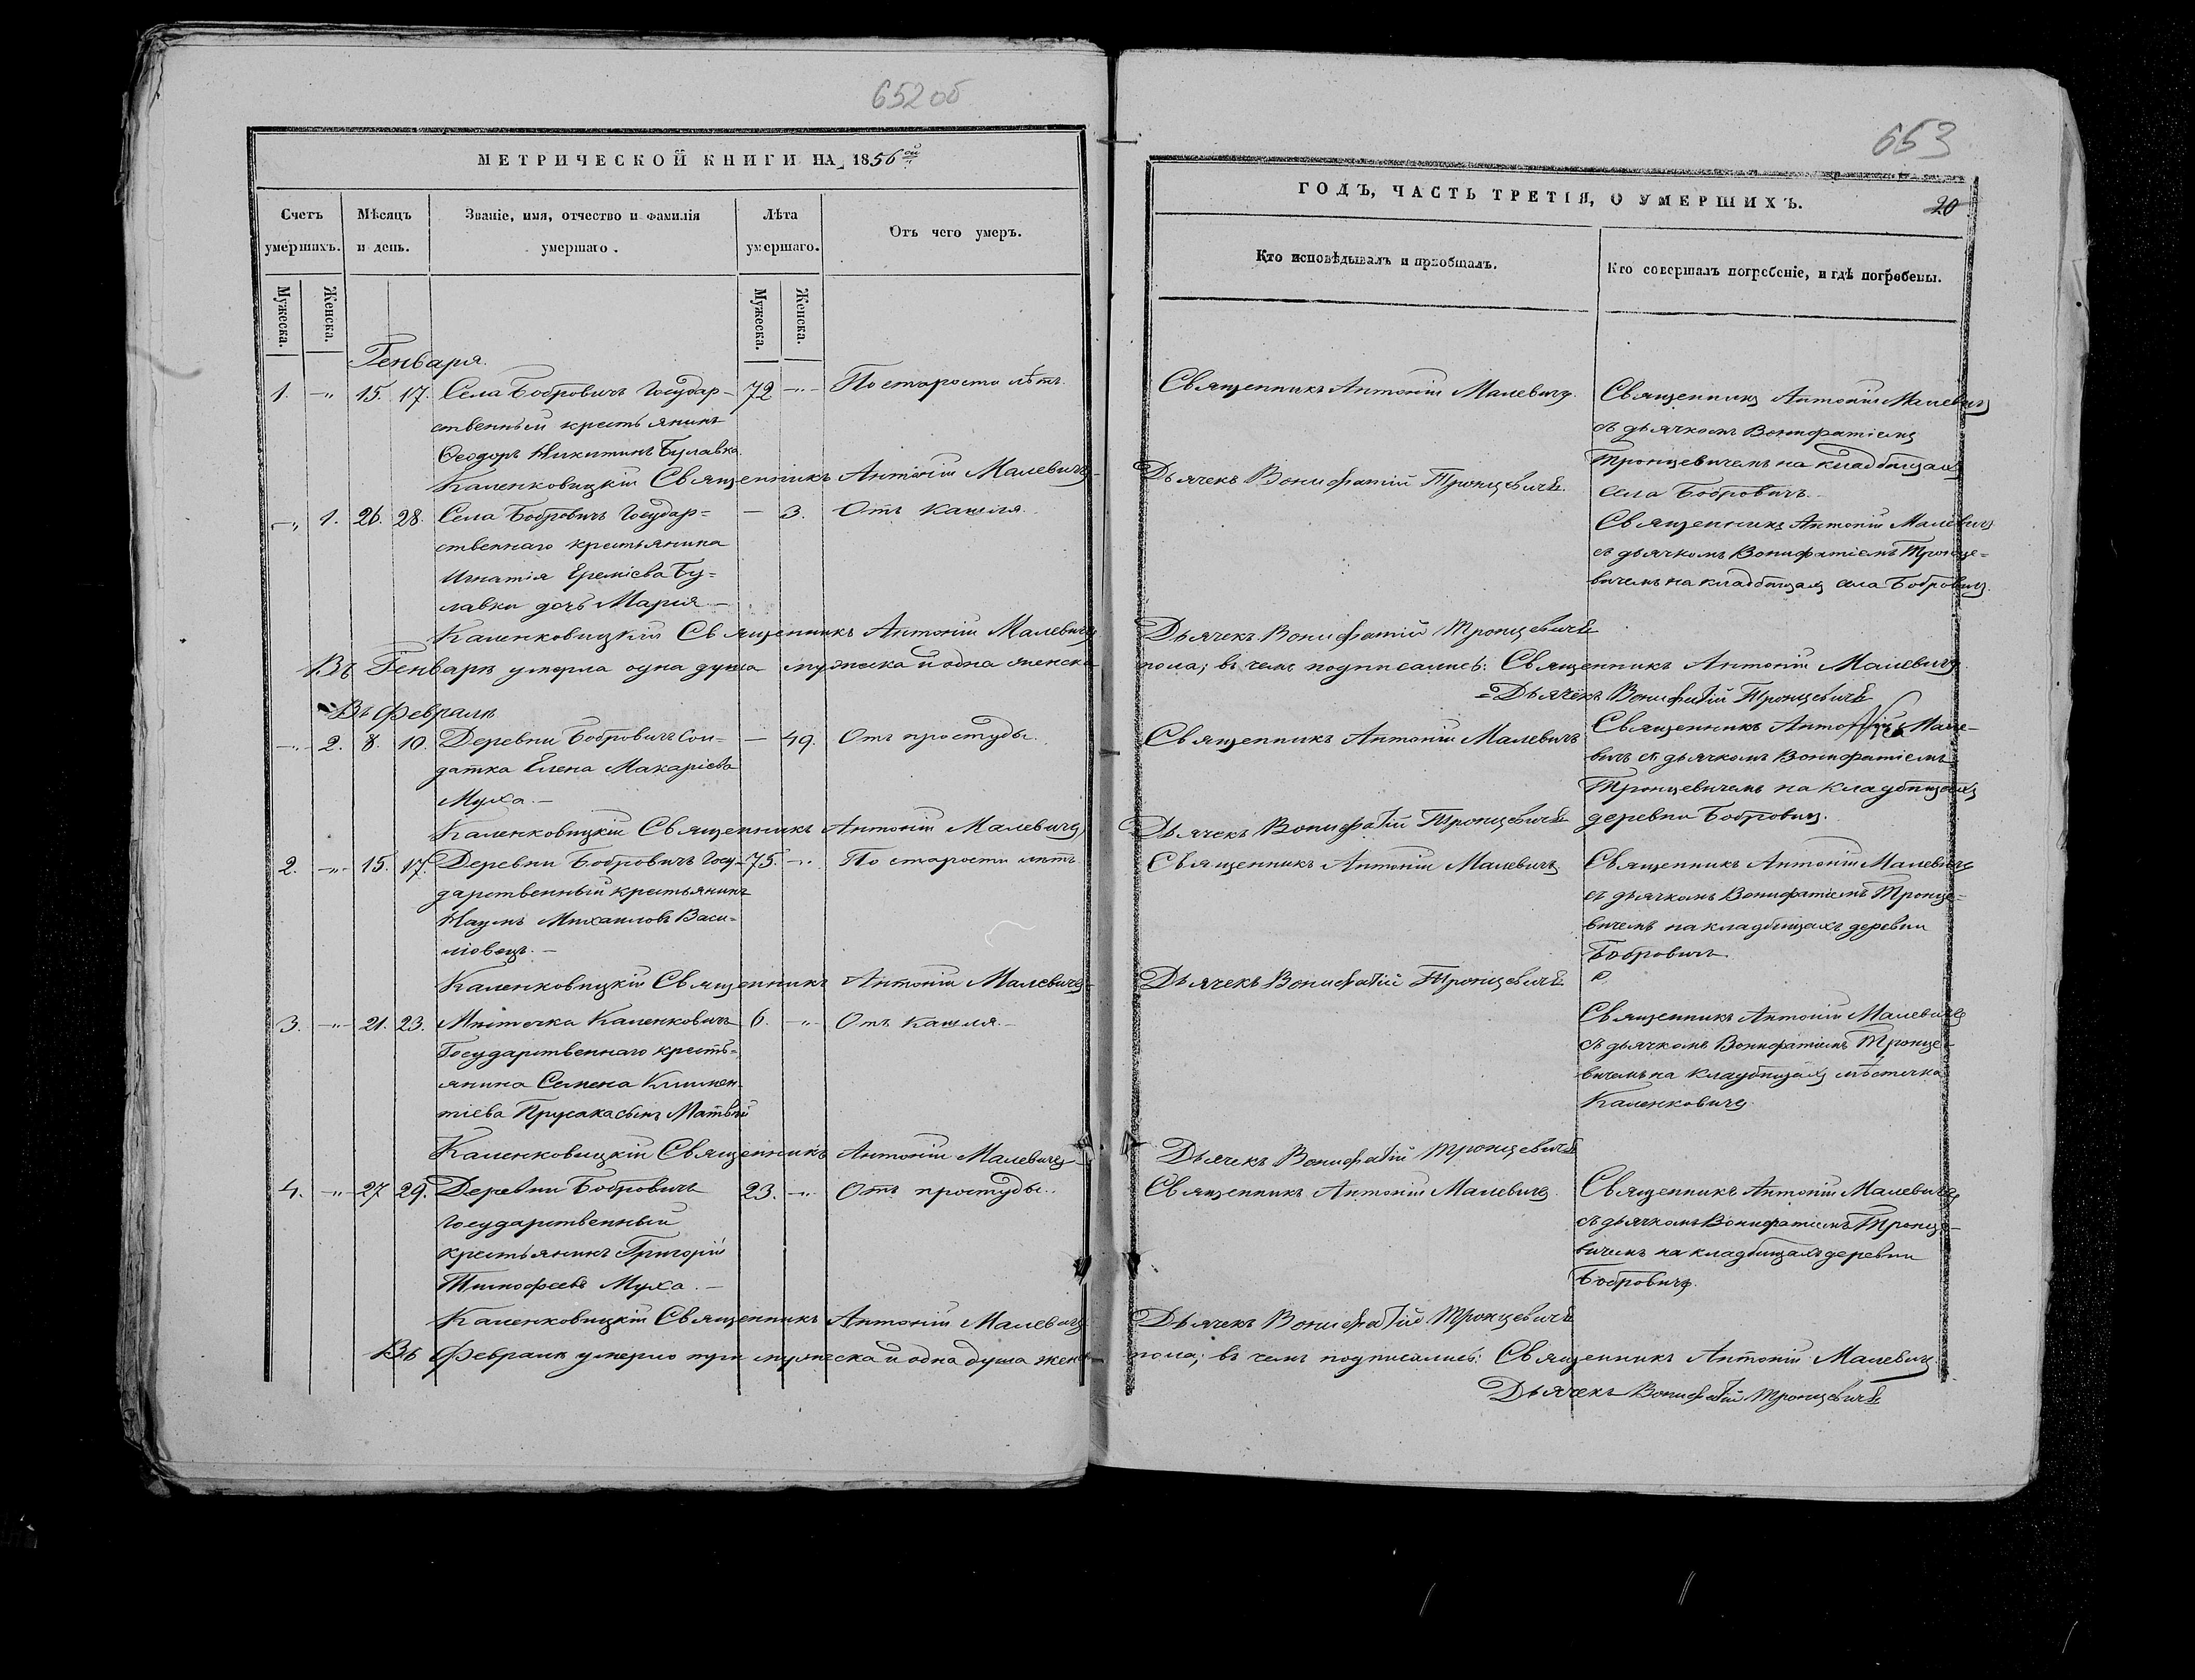 652 об
МЕТРИЧЕСКОЙ КНИГИ НА 1856 ой
Счетъ умершихъ.
Мѣсяцъ и день.
Званіе, имя, отчество и фамилія умершаго.
Лѣта умершаго.
Отъ чего умеръ.
Мужеска.
Женска.
Мужеска.
Женска.
Генваря.
1. -"- 15. 17. Села Бобровичъ Государ- 72 -"- По старости лѣтъ.
ственный крестьянинъ
Ѳеодоръ Никитинъ Булавка.
Каленковицкій Священникъ Антоній Малевичъ
-"- 1. 26. 28. Села Бобровичъ Государ= - 3. Отъ кашля.
ственнаго крестьянина
Игнатія Ереміева Бу=
лавки дочь Марія -
Каленковицкій Священникъ Антоній Малевичъ
Въ Генварѣ умерла одна душа мужеска и одна женска
Въ Февралѣ
-"- 2. 8. 10. Деревни Бобровичъ Сол= - 49. Отъ простуды.
датка Елена Макаріева
Муха. -
Каленковицкій Священникъ Антоній Малевичъ
2. -"- 15. 17. Деревни Бобровичъ Госу- 75. -"- По старости лѣтъ.
дарственный крестьянинъ
Наумъ Михаиловъ Васи=
ліовецъ. -
Каленковицкій Священникъ Антоній Малевичъ
3. -"- 21. 23. Мѣстечка Каленковичъ 6. -"- Отъ кашля. -
Государственнаго кресть=
янина Семена Климен-
тіева Прусака сынъ Матвѣй
Каленковицкій Священникъ Антоній Малевичъ
4. -"- 27. 29. Деревни Бобровичъ 23. -"- Отъ простуды..
Государственный
крестьянинъ Григорій
Тимофеевъ Муха. -
Каленковицкій Священникъ Антоній Малевичъ
Въ Февралѣ умерло три мужеска и одна душа женс
653
ГОДЪ, ЧАСТЬ ТРЕТІЯ, О УМЕРШИХЪ.
20
Кто исповѣдывалъ и пріобщалъ.
Кто совершалъ погребеніе, и гдѣ погребены.
Священникъ Антоній Малевичъ.
Священникъ Антоній Малевичъ
съ дьячкомъ Вонифатіемъ
Тронцевичемъ на кладбищахъ
села Бобровичъ. -
Дьячекъ Вонифатій Тронцевичъ
Священникъ Антоній Малевичъ
съ дьячкомъ Вонифатіемъ Тронце=
вичемъ на кладбищахъ села Бобровичъ.
Дьячекъ Вонифатій Тронцевичъ
пола; въ чемъ подписались: Священникъ Антоній Малевичъ.
= Дьячекъ Вонифатій Тронцевичъ
Священникъ Антоній Малевичъ
Священникъ Антоній Мале-
вичъ съ дьячкомъ Вонифатіемъ
Тронцевичемъ на кладбищахъ
деревни Бобровичъ.
Дьячекъ Вонифатій Тронцевичъ
Священникъ Антоній Малевичъ
Священникъ Антоній Малевичъ
съ дьячкомъ Вонифатіемъ Тронце=
вичемъ на кладбищахъ деревни
Бобровичъ.
Дьячекъ Вонифатій Тронцевичъ
Священникъ Антоній Малевичъ
съ дьячкомъ Вонифатіемъ Тронце-
вичемъ на кладбищахъ мѣстечка
Каленковичъ
Дьячекъ Вонифатій Тронцевичъ
Священникъ Антоній Малевичъ.
Священникъ Антоній Малевичъ
съ дьячкомъ Вонифатіемъ Тронце-
вичемъ на кладбищахъ деревни
Бобровичъ.
Дьячекъ Вонифатій Тронцевичъ
пола; въ чемъ подписались: Священникъ Антоній Малевичъ.
Дьячекъ Вонифатій Тронцевичъ